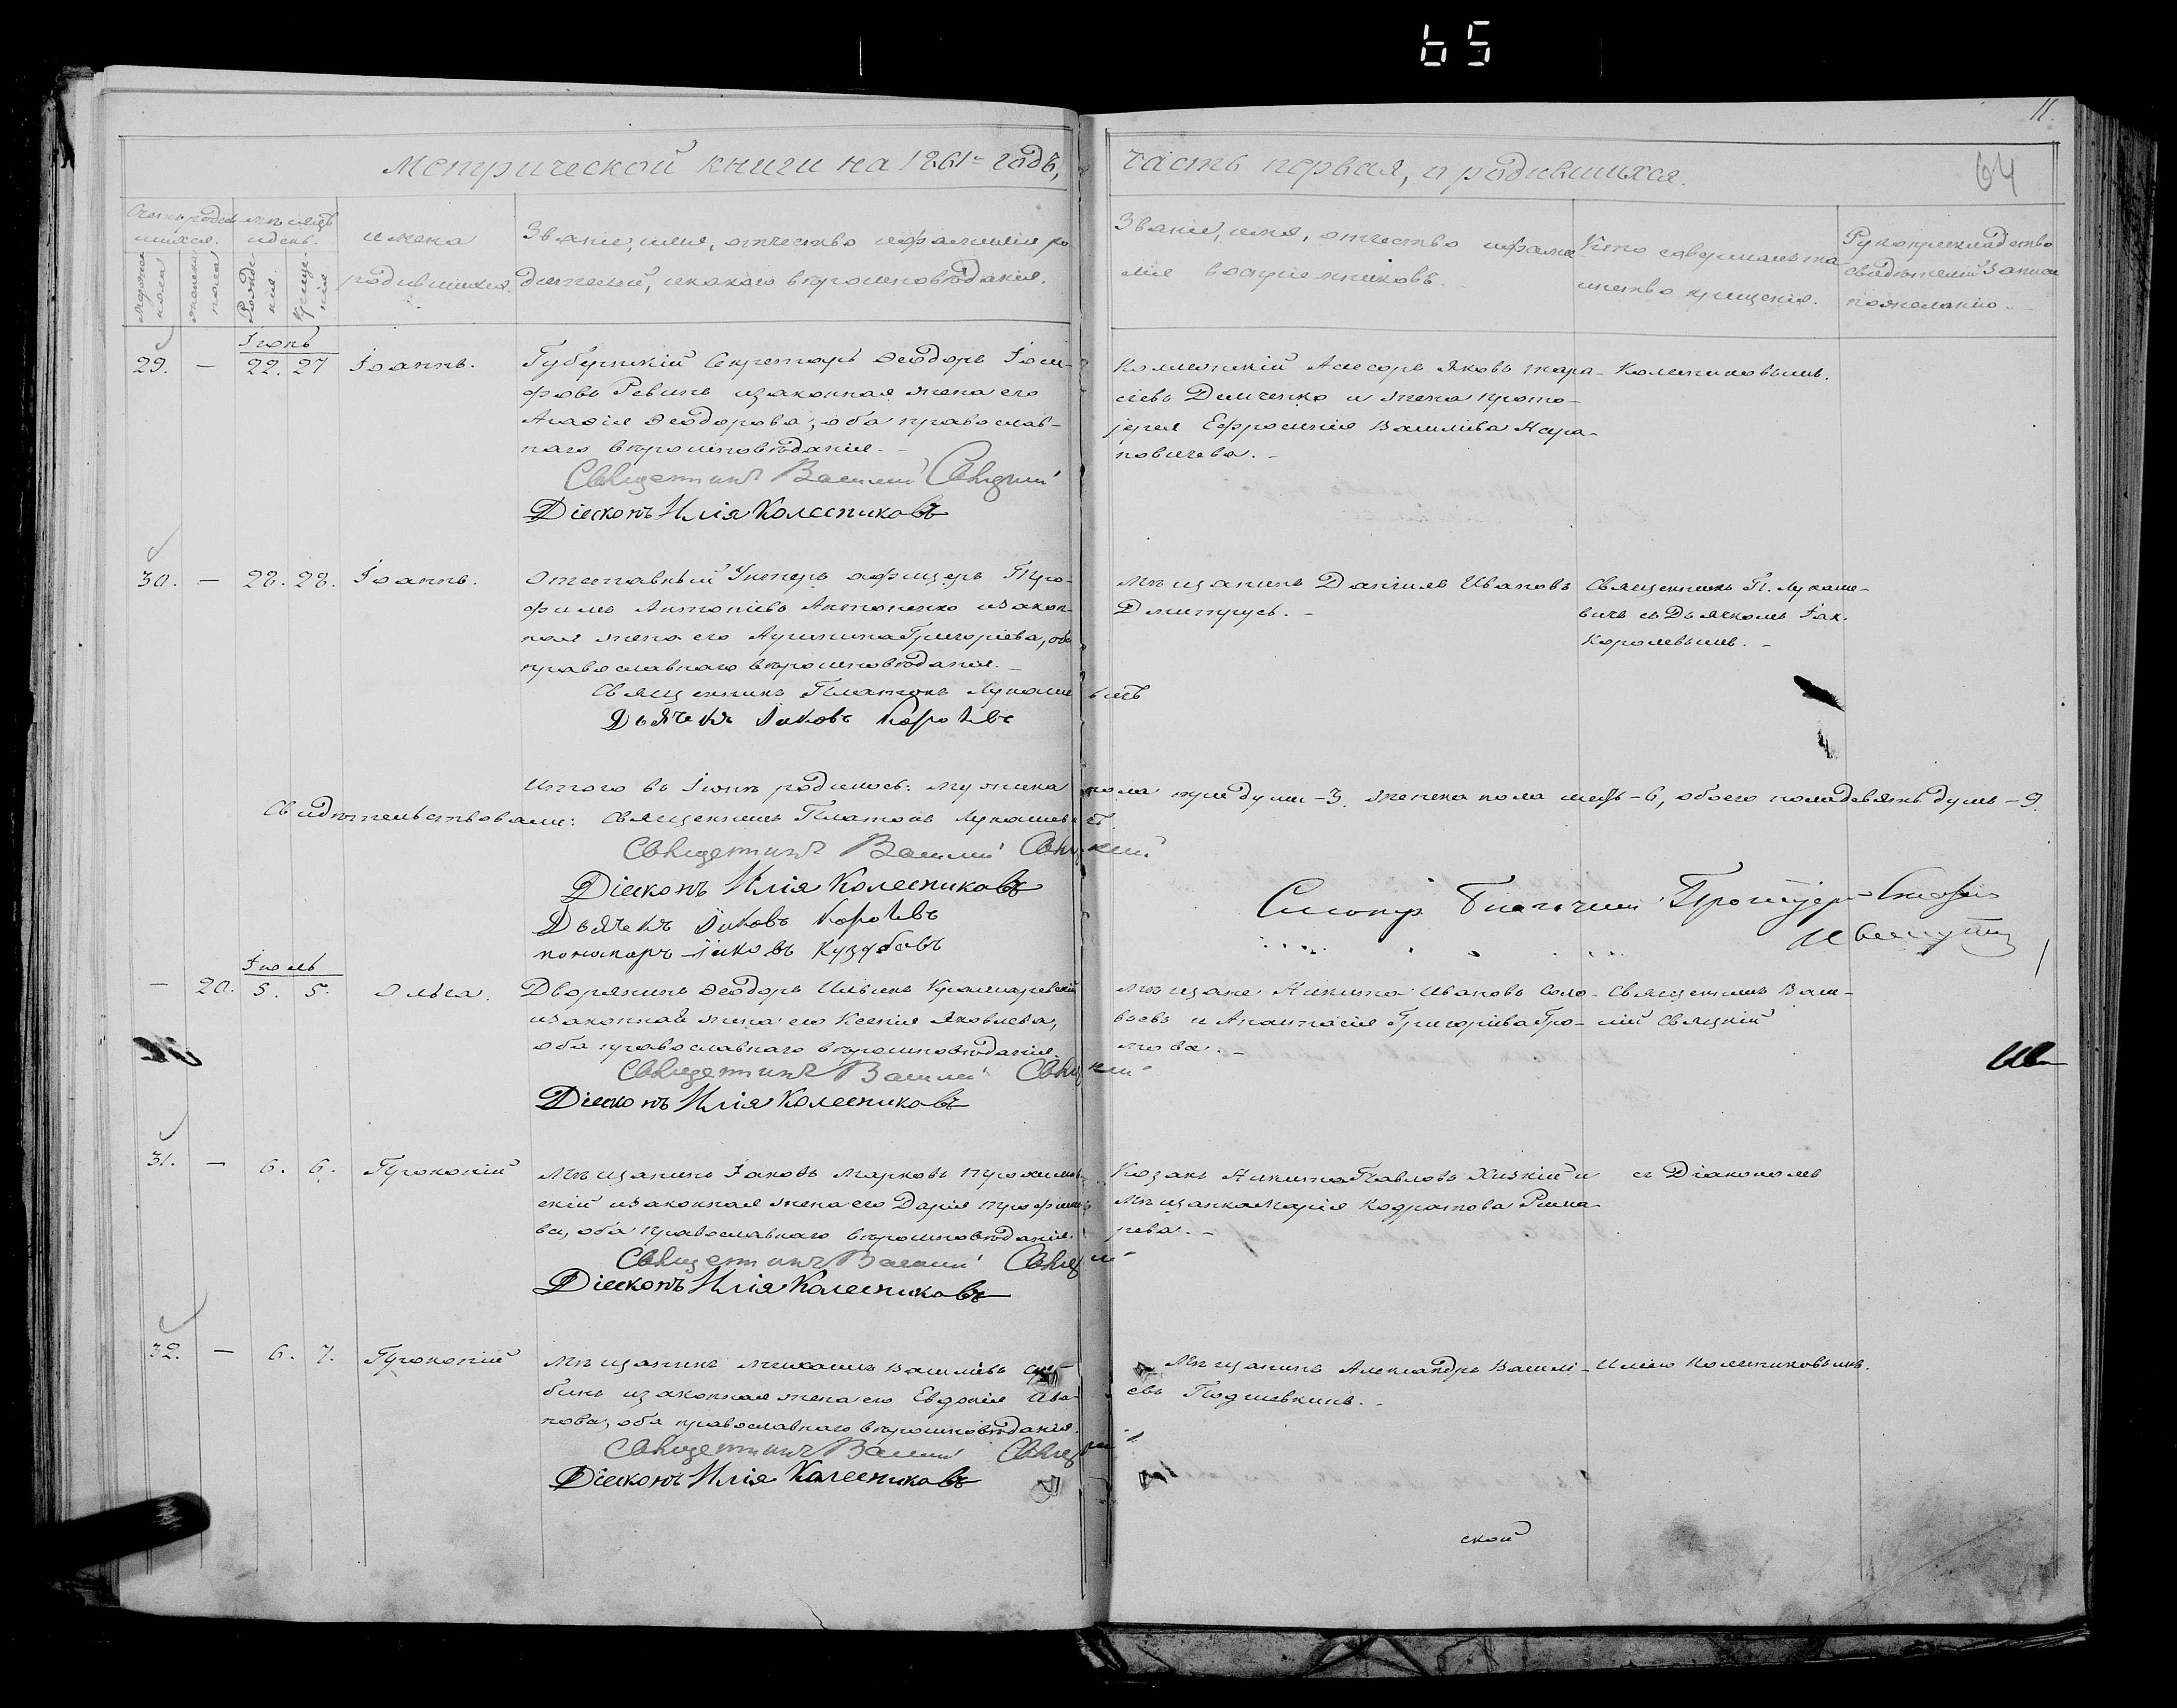 65
11.
64
Метрической книги на 1861й годъ,
часть первая, о родившихся.
Счетъ родившихся.
Мѣсяцъ и день.
Имена родившихся.
Званіе, имя, отчество и фамилія родителей, и какого вѣроисповѣданія.
Званіе, имя, отчество и фамилія воспріемниковъ.
Кто совершалъ таинство крещенія.
Рукоприкладство свидѣтелей записи по желанію.
Мужеска пола
Женска пола
Рожденія.
Крещенія.
Іюнь
29. — 22. 27 Іоаннъ.
Губернскій Секретарь Ѳеодоръ Іоси-
фовъ Ревинъ и законная жена его
Ѳеодорова, оба православ-
наго вѣроисповѣданія.
Священникъ Василій Свяцкій
Діаконъ Илія Колесниковъ
Коллежскій Асесоръ Яковъ Тара-
сіевъ Демченко и жена прото-
іерея Ефросинія Василіева
Колесниковымъ.
30. — 28. 28. Іоаннъ.
Отставный Унтеръ офицеръ Тро-
фимъ Антоніевъ Антоненко и закон-
ная жена его Григоріева, оба
православнаго вѣроисповѣданія.
Священникъ Платонъ Лукашевичъ
Дьячекъ Іаковъ Королевъ
Мѣщанинъ Даніилъ Ивановъ
Дмитрусь.
Священникъ П. Лукаше-
вичъ съ Дьячкомъ Іак.
Королевымъ.
Итого въ Іюнѣ родилось: мужеска пола три души - 3, женска пола шесть - 6, обоего пола девять душъ - 9.
Свидѣтельствовали: Священникъ Платонъ Лукашевичъ.
Священникъ Василій Свяцкій
Діаконъ Илія Колесниковъ
Дьячекъ Іаковъ Королевъ
пономарь Іаковъ Кузубовъ
Благочинный Протоіерей
Іюль
— 20. 5. 5. Ольга.
Дворянинъ Ѳеодоръ Ильинъ
и законная жена его Ксенія Яковлева,
оба православнаго вѣроисповѣданія.
Священникъ Василій Свяцкій
Діаконъ Илія Колесниковъ
Мѣщане Никита Ивановъ Соло-
вьевъ и Анастасія Григоріева Гро-
мова.
Священникъ Васи-
лій Свяцкій
31. — 6. 6. Прокопій
Мѣщанинъ Іаковъ Марковъ
скій и законная жена его Дарія Трофимо-
ва, оба православнаго вѣроисповѣданія.
Священникъ Василій Свяцкій
Діаконъ Илія Колесниковъ
Козакъ Никита Павловъ и
Мѣщанка Марія Кодратова Рима-
рева.
съ Діакономъ
32. — 6. 7. Прокопій
Мѣщанинъ Михаилъ Василіевъ
бинъ и законная жена его Евдокія Ива-
нова, оба православнаго вѣроисповѣданія.
Священникъ Василій Свяцкій
Діаконъ Илія Колесниковъ
Мѣщанинъ Александръ Василі-
евъ Подшевкинъ.
Иліею Колесниковымъ.
ской